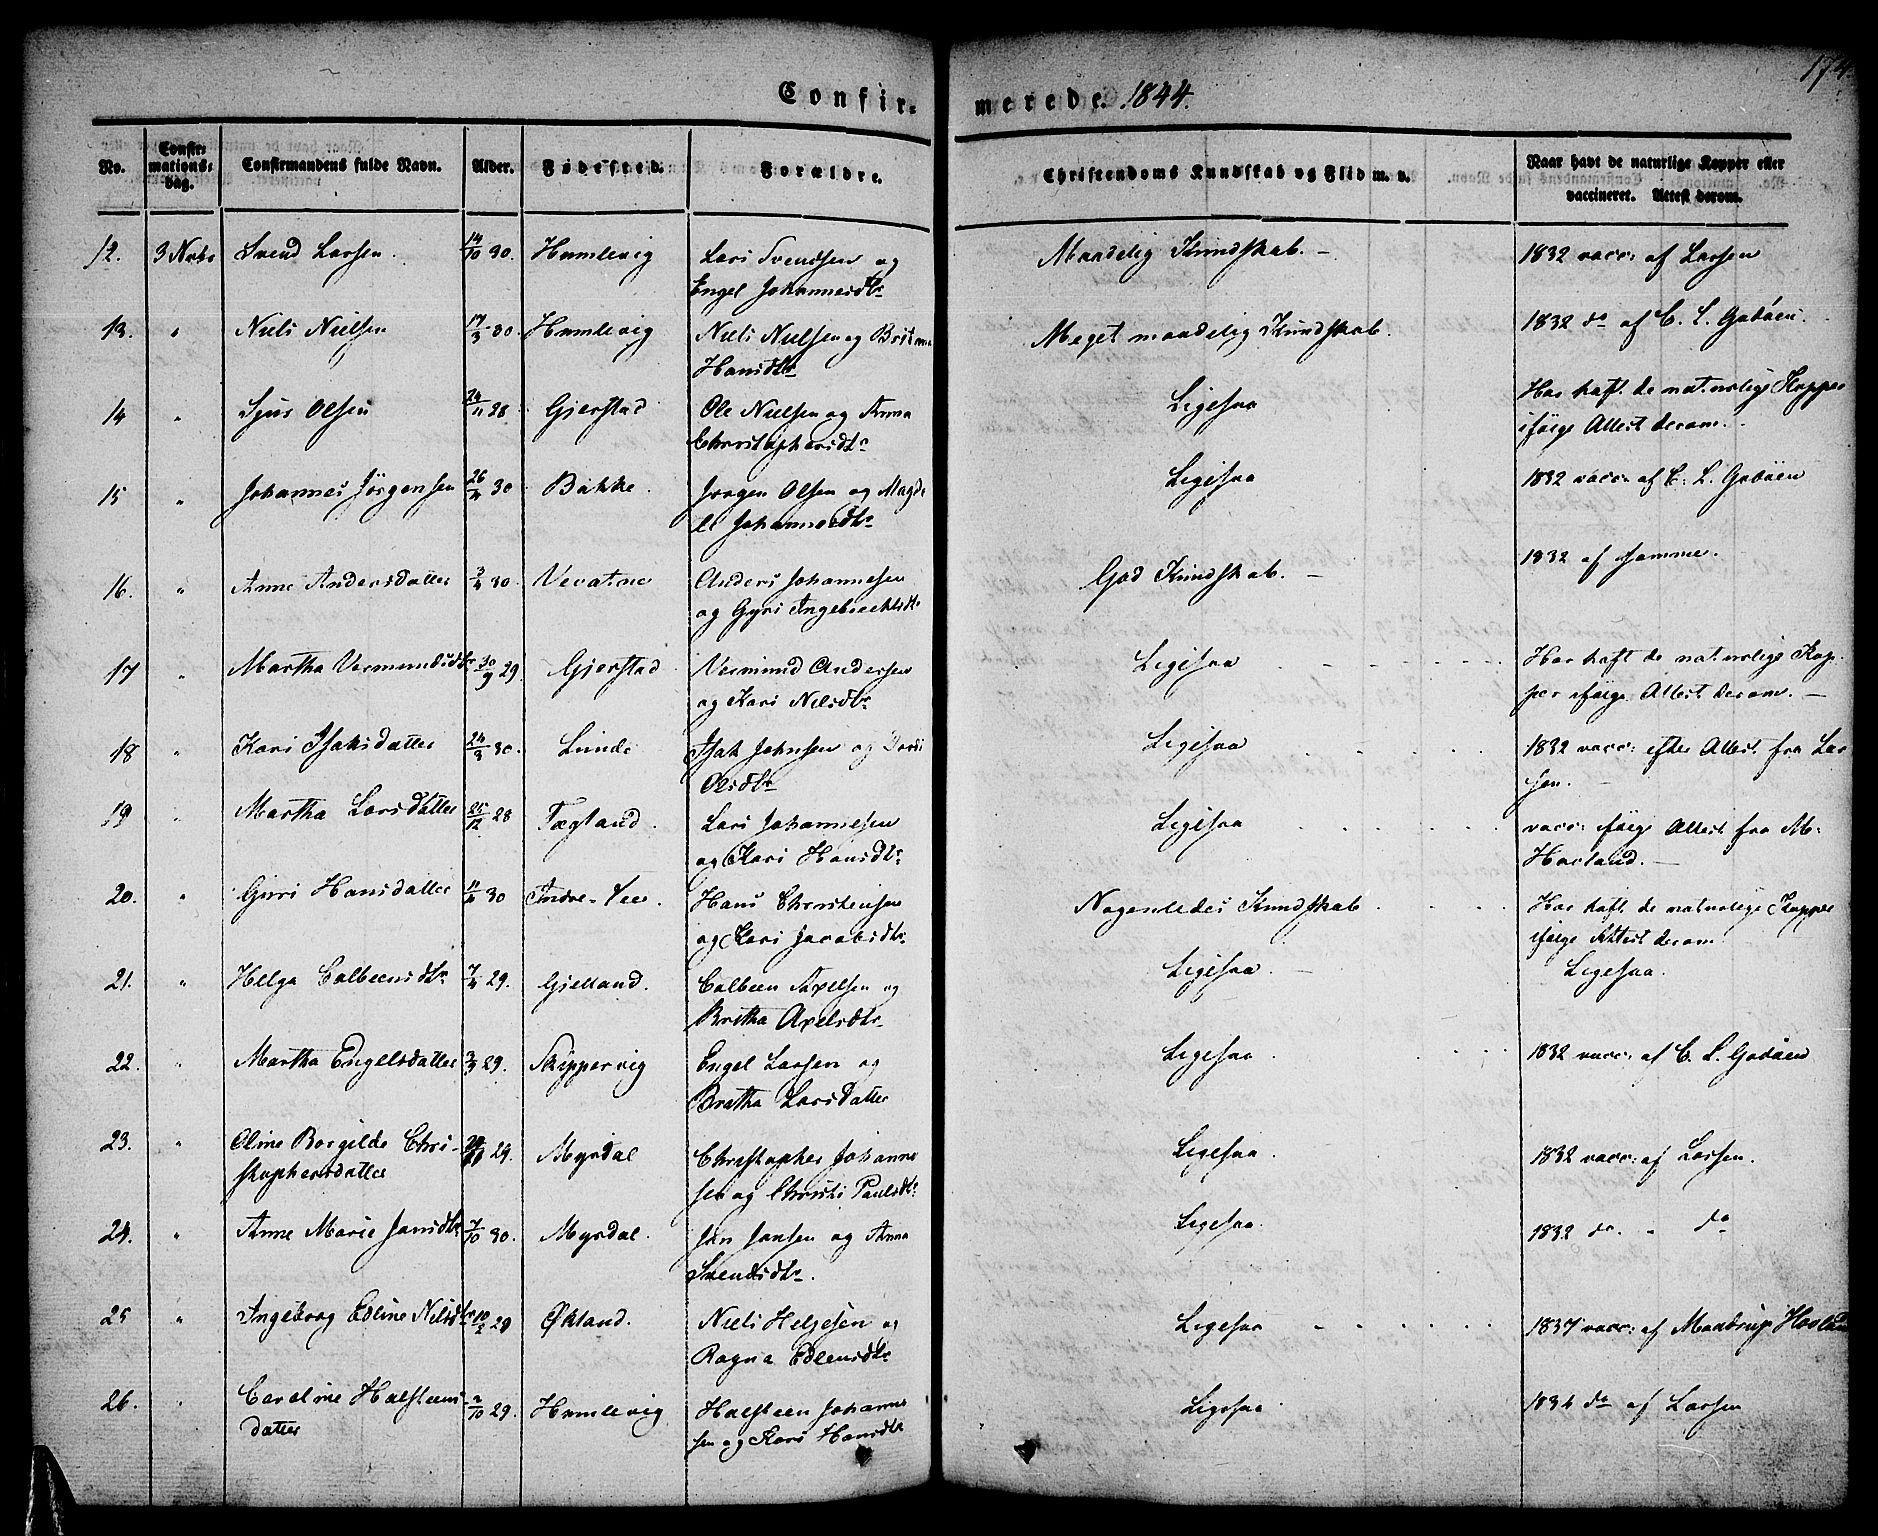 174.
Confirmerede. 1844.
No. Confirmationsdag. Confirmandens fulde Navn. Alder. Fødested. Forældre. Christendoms Kundskab og Flid m. v. Naar havt de naturlige Kopper eller vaccineret. Attest derom.
12. 3 Nvbr Svend Larsen. 14/10 30. Humlevig Lars Svendsen og Maadelig Kundskab. – 1832 vacc: af Larsen
Engel Johannesdtr
13. " Niels Nielsen 17/3 30. Humlevig Niels Nielsen og Meget maadelig Kundskab. 1832 do af C. L. Godøen.
Hansdtr
14 " Sjur Olsen 24/11 28 Gjerstad Ole Nielsen og Anna Ligesaa Har haft de naturlige Kopper
Christophersdtr ifølge Attest derom.
15 " Johannes Jörgensen 26/4 30 Bakke. Jørgen Olsen og Magde Ligesaa 1832 vacc: af C: L. Godøen
li Johannesdtr
16. " Anne Andersdatter 3/4 30. Veratne Anders Johannesen God Kundskab. – 1832 af samme.
og Gyri Ingebrechtsdtr
17 " Martha Vermundsdtr 30/9 29. Gjerstad Vermund Andersen Ligesaa Har haft de naturlige Kop-
og Kari Nilsdtr per ifølge Attest derom. –
18 " Kari Isaksdatter 24/3 30. Lunde Isak Johnsen og Ligesaa 1832 vacc: efter Attest fra Lar
Olsdtr sen. –
19 " Martha Larsdatter 25/12 28 Tægland. Lars Johannesen Ligesaa vacc: ifølge Attest fra M.
og Kari Hansdtr Havland. –
20. " Guri Hansdatter 11/4 30 Hans Christensen Nogenledes Kundskab. Har haft de naturlige Kopper
og Kari Jacobsdtr ifølge Attest derom
21. " Helga Colbeensdtr 7/4 29. Gjelland. Colbeen Axelsen og Ligesaa. – Ligesaa.
Britha Axelsdtr
22. " Martha Engelsdatter 3/3 29. Skippervig Engel Larsen og Ligesaa. 1832 vacc: af C. L. Godøen
Britha Larsdatter
23. " Oline Borgilde Chri- 29. Myrdal Christopher Johanne Ligesaa 1832 vacc: af Larsen.
stophersdatter sen og Christi Paulsdtr
24. " Anne Marie Jansdtr 7/10 30. Myrdal. Jan Jansen og Anna Ligesaa. 1832 do. " do
Svendsdtr.
25 " Ingeborg Edline Nilsdtr 10/2 29 Økland. Niels Helgesen og Ligesaa 1837 vacc: af Mandrup Havland
Ragna Edlensdtr
26. " Caroline Halsteens- 2/10 29. Humlevig Halsteen Johanne Ligesaa. 1834 do af Larsen
datter sen og Kari Hansdtr